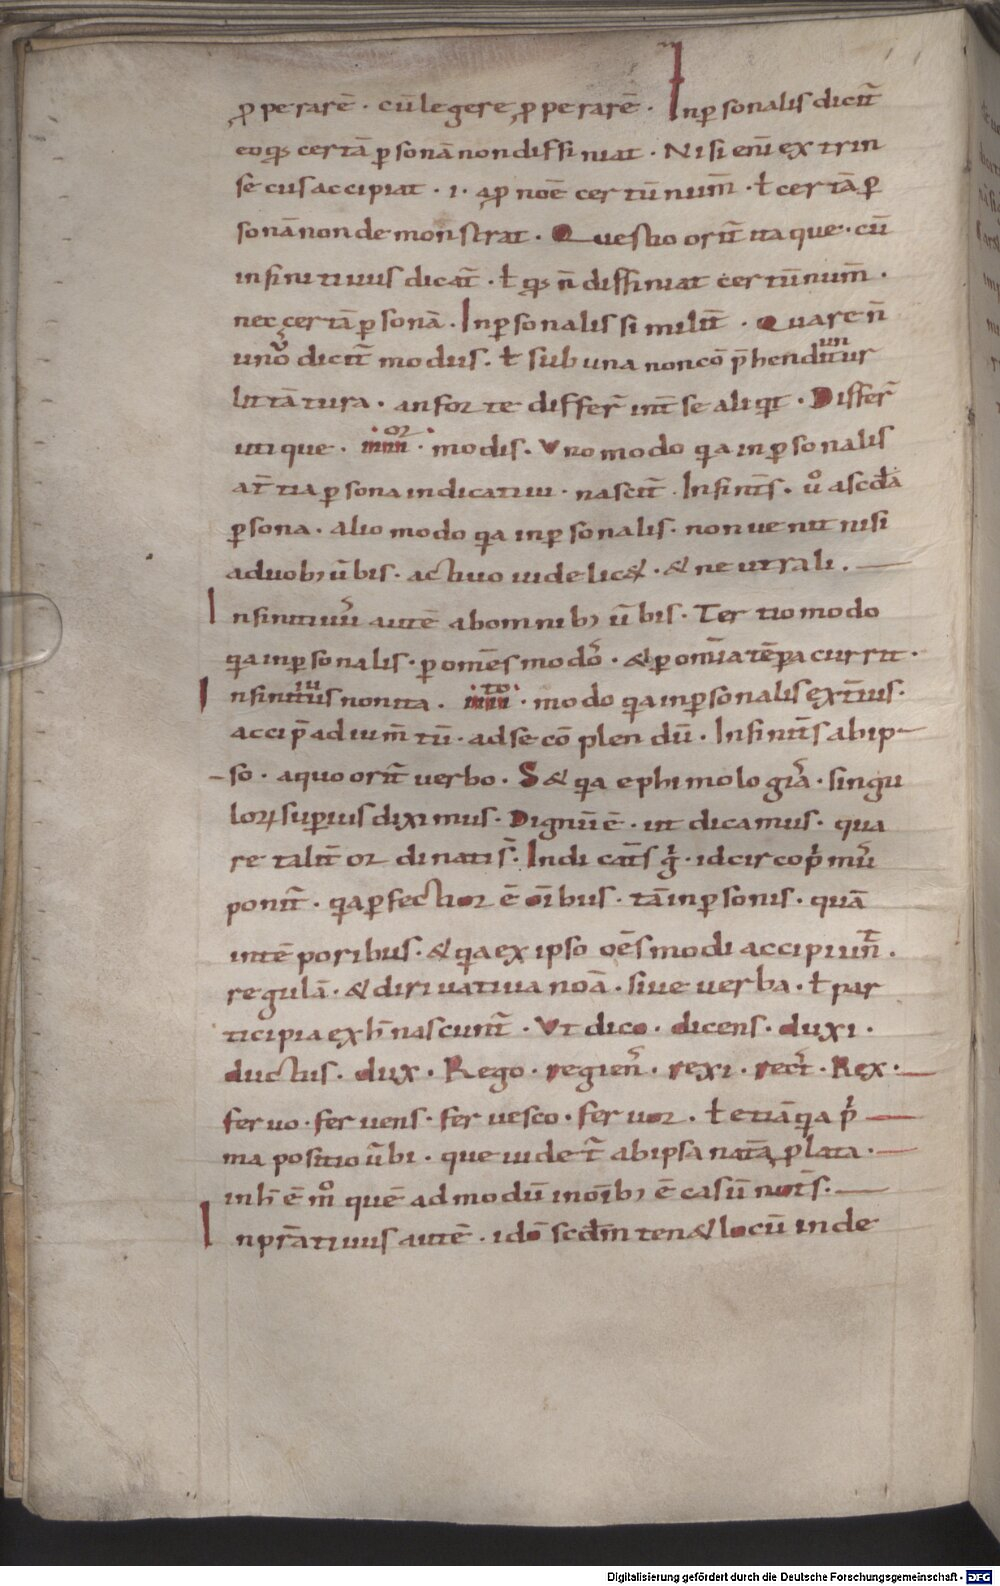 ꝓperarē · cū legere ꝓperarē · Inꝑsonalis dicit̄
eo qđ certā ꝑsonā non diffiniat · Nisi enī extrin
secus accipiat · i · ꝓnoē certū num̄ · ł certā ꝑ
sonā non demonstrat · Questio orit̄ itaque · cū
infinitiuus dicat̄ · ł qđ n̄ diffiniat certū num̄ ·
nec certā ꝑsonā · Inꝑsonalis similit̄ · Quare n̄
uno dicit̄ modus · ł sub una non cōp̄hendit̄ur
littātura · an forte differ̄ int̄ se aliqđ · Differ̄
utique · iiiior · modis · Vno modo qa inꝑsonalis
at̄tia ꝑsona indicatiui · nascit̄ · Infinit̄s · u̾ ascđa
ꝑsona · alio modo qa inꝑsonalis · non uenit nisi
a duobꝫ ūbis · actiuo uidelic& · & neutrali ·
Infinitiuū autē ab omnibꝫ ūbis · Tertio modo
qa inꝑsonalis · ꝑ om̄es modos · & ꝑ om̄ia tēpa currit ·
Infinitiuus non ita · iiiito · modo qa inꝑsonalis ext̄ius ·
accip̄ adium̄tū · ad se cōplendū · Infinit̄s ab ip-
-so · a quo orit̄ uerbo · S& qa ephimologiā · singu
loꝝ suꝑius diximus · Dignū ē · ut dicamus · qua
re talit̄ ordinati s̄ · Indicat̄s g̾ · idcirco p̾mū
ponit̄ · qa ꝑfectior ē oībus · tā in ꝑsonis · quā
in tēporibus · & qa ex ipso oēs modi accipiun̄t ·
regulā · & diriuatiua noā · siue uerba · ł par
ticipia ex h̄ nascunt̄ · Vt dico · dicens · duxi ·
ductus · dux · Rego · regien̄s · rexi · rect̾ · Rex ·
feruo · feruens · feruesco · feruor · ł etiā qa p̾
ma positio ūbi · que uidet̄ ab ipsa natā ꝓlata ·
in h̄ ē m̊ quē ad modū in oībꝫ ē casū not̄s ·
Inpr̄atiuus autē · idō scđm ten& locū inde
Digitalisierung gefördert durch die Deutsche Forschungsgemeinschaft - DFG